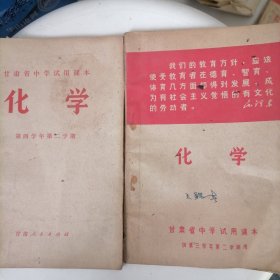 甘肃省中学试用课本
化学
第四学年第二学期
甘肃人民出版社
我们的教育方针，应该
使受教育者在德育、智育、
体育几方面都得到发展，成
为有社会主义觉悟的有文化
的劳动者。
毛泽东
化学
甘肃省中学试用课本